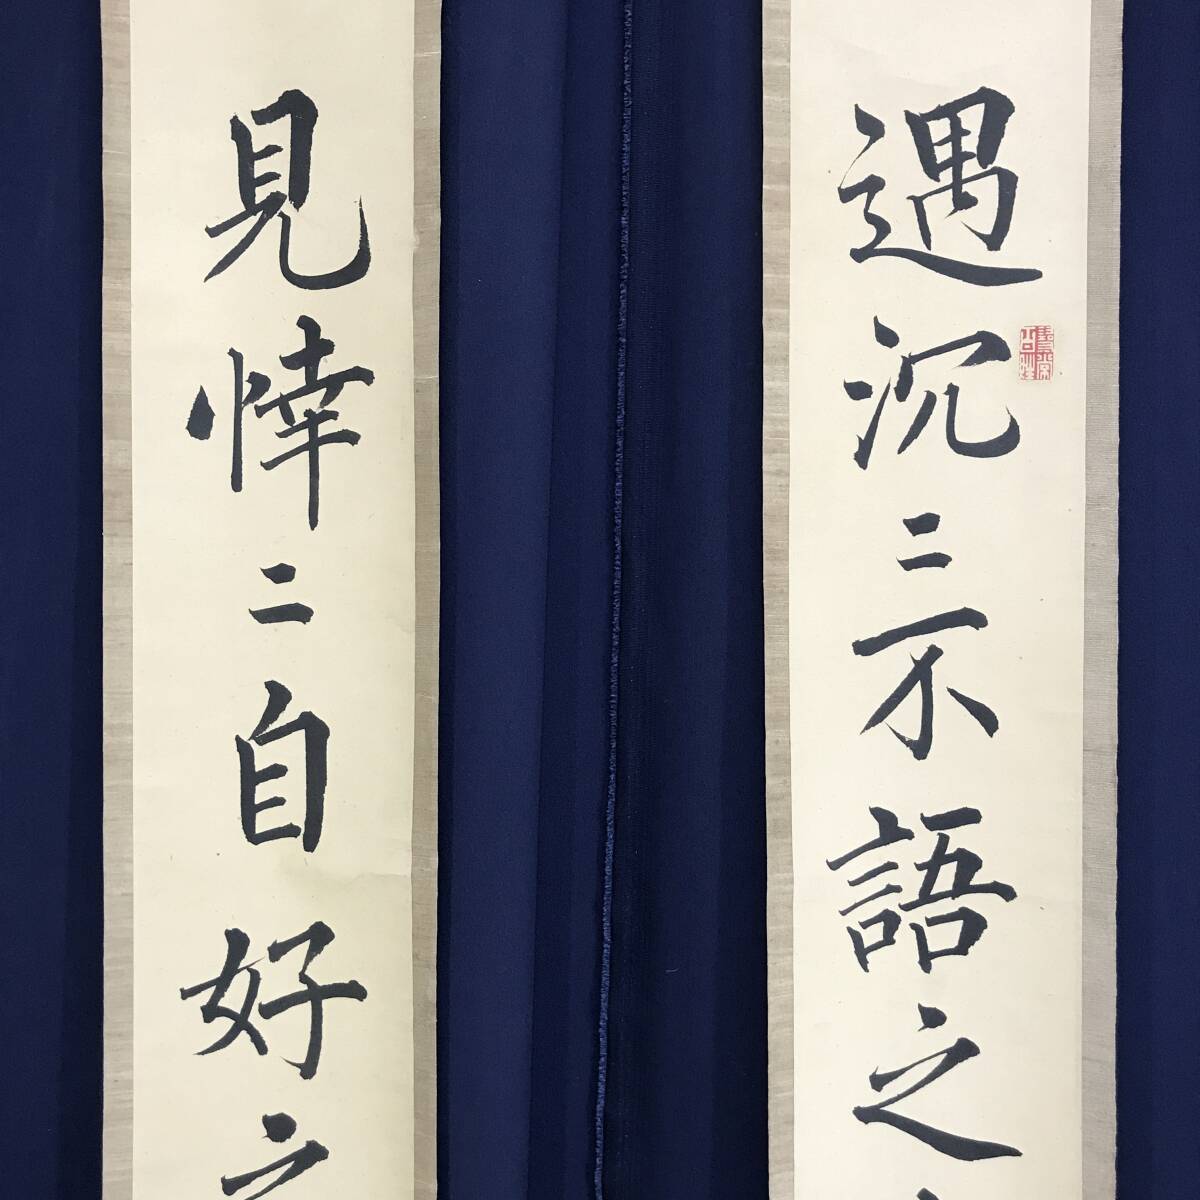 遇沉〻不語之
見悻〻自好之